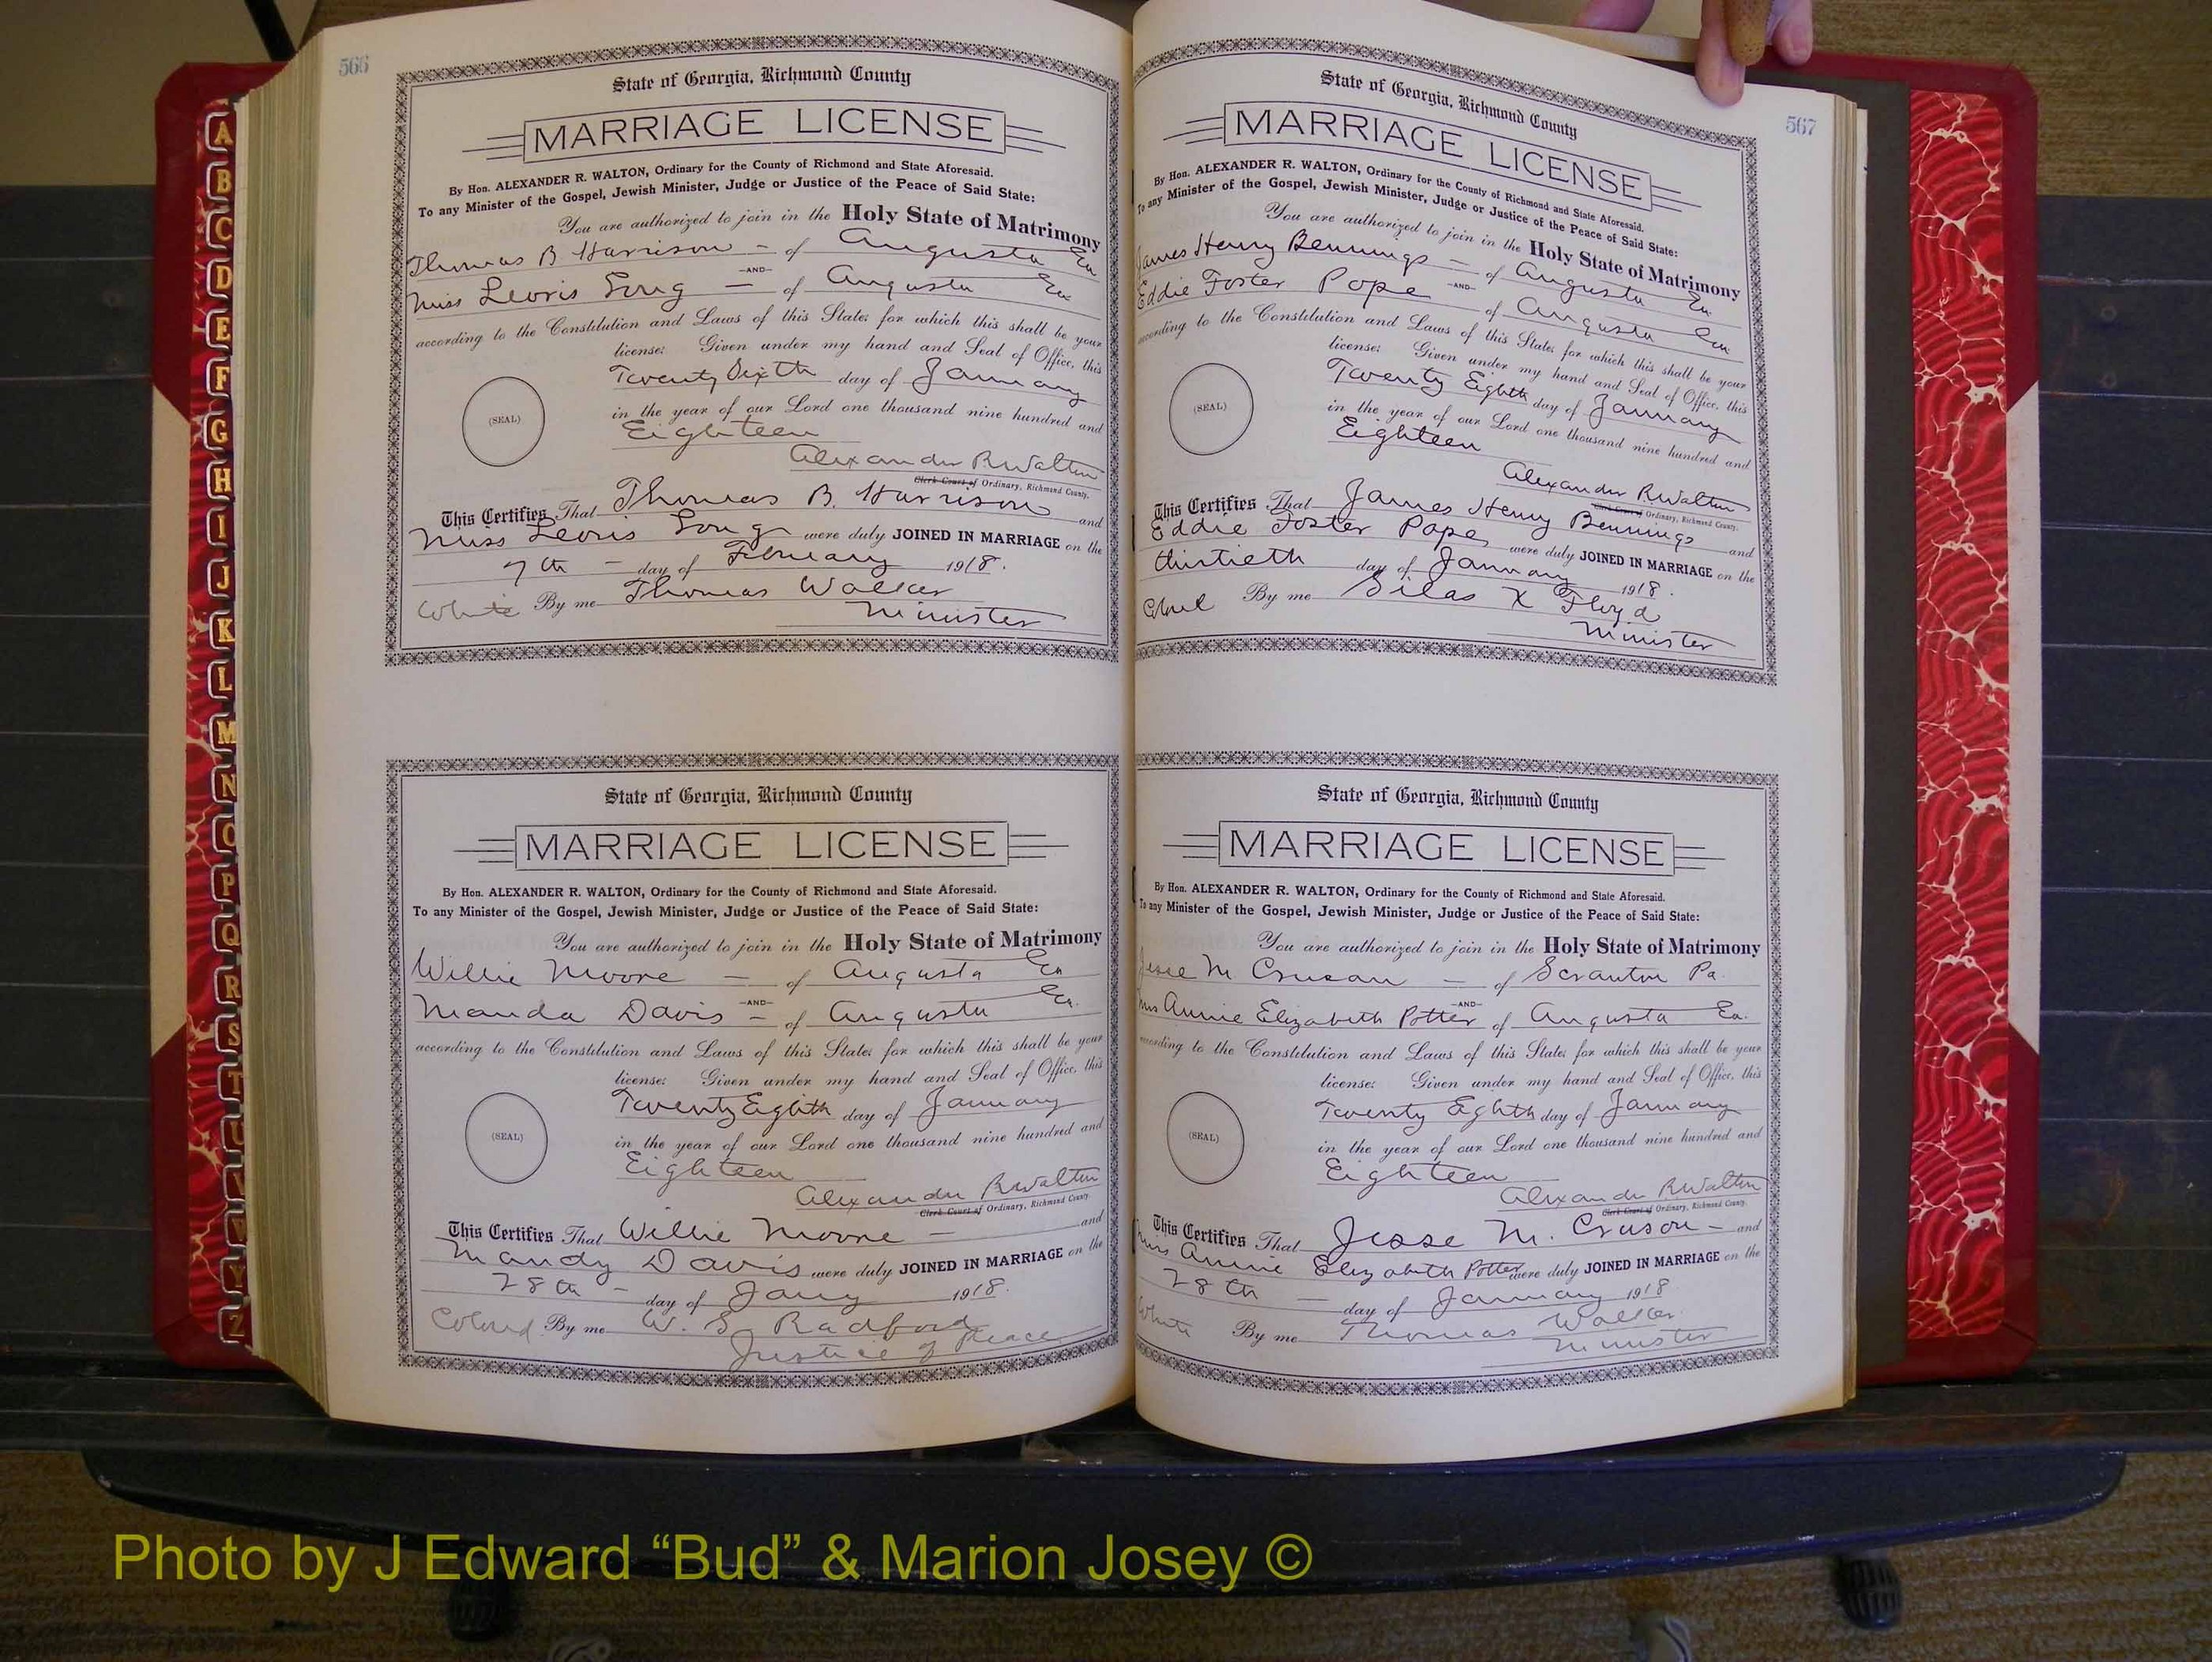 566
State of Georgia, Richmond County
MARRIAGE LICENSE
By Hon. ALEXANDER R. WALTON, Ordinary for the County of Richmond and State Aforesaid.
To any Minister of the Gospel, Jewish Minister, Judge or Justice of the Peace of Said State:
You are authorized to join in the Holy State of Matrimony
Thomas B Harrison - of Augusta Ga
-AND-
Miss Leoris Long - of Augusta Ga
according to the Constitution and Laws of this State; for which this shall be your
license: Given under my hand and Seal of Office, this
Twenty Sixth day of January
(SEAL)
in the year of our Lord one thousand nine hundred and
Eighteen
Alexander R Walton
Clerk Court of Ordinary, Richmond County.
This Certifies That Thomas B. Harrison and
Miss Leoris Long were duly JOINED IN MARRIAGE on the
7th - day of February 1918.
White By me Thomas Walker
Minister
State of Georgia, Richmond County
MARRIAGE LICENSE
By Hon. ALEXANDER R. WALTON, Ordinary for the County of Richmond and State Aforesaid.
To any Minister of the Gospel, Jewish Minister, Judge or Justice of the Peace of Said State:
You are authorized to join in the Holy State of Matrimony
Willie Moore - of Augusta Ga
-AND-
Manda Davis - of Augusta Ga.
according to the Constitution and Laws of this State; for which this shall be your
license: Given under my hand and Seal of Office, this
Twenty Eighth day of January
(SEAL)
in the year of our Lord one thousand nine hundred and
Eighteen
Alexander R Walton
Clerk Court of Ordinary, Richmond County.
This Certifies That Willie Moore - and
Mandy Davis were duly JOINED IN MARRIAGE on the
28th - day of Jany 1918.
Colored By me W. S. Radford
Justice of Peace
567
State of Georgia, Richmond County
MARRIAGE LICENSE
By Hon. ALEXANDER R. WALTON, Ordinary for the County of Richmond and State Aforesaid.
To any Minister of the Gospel, Jewish Minister, Judge or Justice of the Peace of Said State:
You are authorized to join in the Holy State of Matrimony
James Henry Bennings - of Augusta Ga.
-AND-
Eddie Foster Pope of Augusta Ga
according to the Constitution and Laws of this State; for which this shall be your
license: Given under my hand and Seal of Office, this
Twenty Eighth day of January
(SEAL)
in the year of our Lord one thousand nine hundred and
Eighteen
Alexander R Walton
Clerk Court of Ordinary, Richmond County.
This Certifies That James Henry Bennings and
Eddie Foster Pope were duly JOINED IN MARRIAGE on the
thirtieth day of January 1918.
By me Silas X Floyd
Minister
State of Georgia, Richmond County
MARRIAGE LICENSE
By Hon. ALEXANDER R. WALTON, Ordinary for the County of Richmond and State Aforesaid.
To any Minister of the Gospel, Jewish Minister, Judge or Justice of the Peace of Said State:
You are authorized to join in the Holy State of Matrimony
Jesse M Cruson - of Scranton Pa.
-AND-
Annie Elizabeth Potter of Augusta Ga.
according to the Constitution and Laws of this State; for which this shall be your
license: Given under my hand and Seal of Office, this
Twenty Eighth day of January
(SEAL)
in the year of our Lord one thousand nine hundred and
Eighteen
Alexander R Walton
Clerk Court of Ordinary, Richmond County.
This Certifies That Jesse M. Cruson - and
Annie Elizabeth Potter were duly JOINED IN MARRIAGE on the
28th - day of January 1918
White By me Thomas Walker
Minister
A
B
C
D
E
F
G
H
I
J
K
L
M
N
O
P
Q
R
S
T
U
V
Y
Z
Photo by J Edward “Bud” & Marion Josey ©